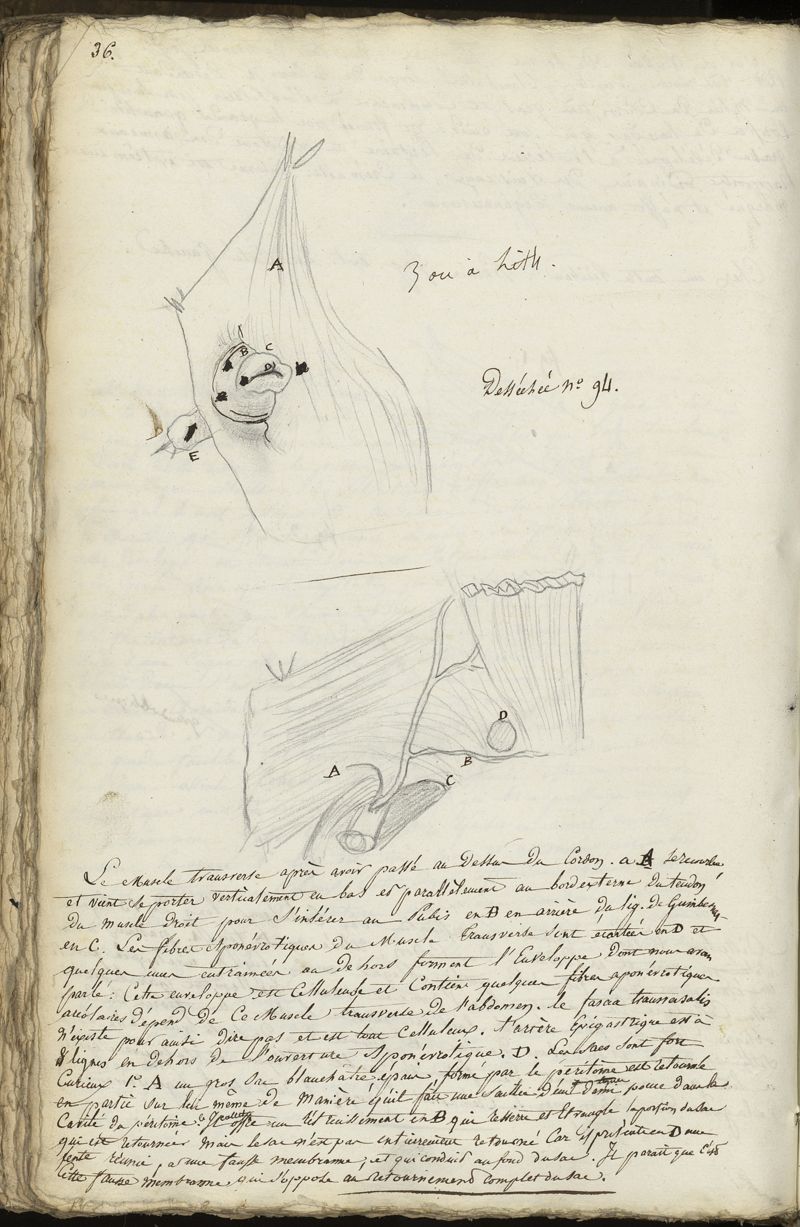 36.
A
3 ou à Lith.
B C
D
Desséchée nº 94.
E
D
A
B
C
Le Muscle transverse après avoir passé au Dessus du Cordon. a A se recourbe
et vient se porter verticalement en bas et parallèlement au bord externe du tendon
du muscle droit pour s'insérer au Pubis en B en arrière du lig. de Gimbernat
en C. Les fibres aponévrotiques du Muscle Transverse sont écartées en D et
quelques unes entrainées au dehors forment l'Enveloppe dont nous avons
parlé: Cette enveloppe est Celluleuse et Contient quelques fibres aponévrotiques
aréolaires dépend de Ce Muscle transverse de l'abdomen. le fascia transversalis
n'existe pour ainsi dire pas et est tout Celluleux. l'artère Epigastrique est à
8 lignes en dehors de l'ouverture Aponévrotique. D. Les sacs sont fort
Curieux 1º. A un gros sac blanchâtre épais, formé par le péritoine est retourné
en partie sur lui même de Manière qu'il fait une saillie d'un demi pouce dans la
Cavité du péritoine. Il offre un rétrécissement en B qui resserre et étrangle la portion du sac
qui est retournée mais le sac n'est pas entièrement retourné Car il présente en D une
fente réunie, a une fausse membranne; et qui conduit au fond du sac. Il parait que C'est
Cette fausse membranne qui s'oppose au retournement complet du sac.